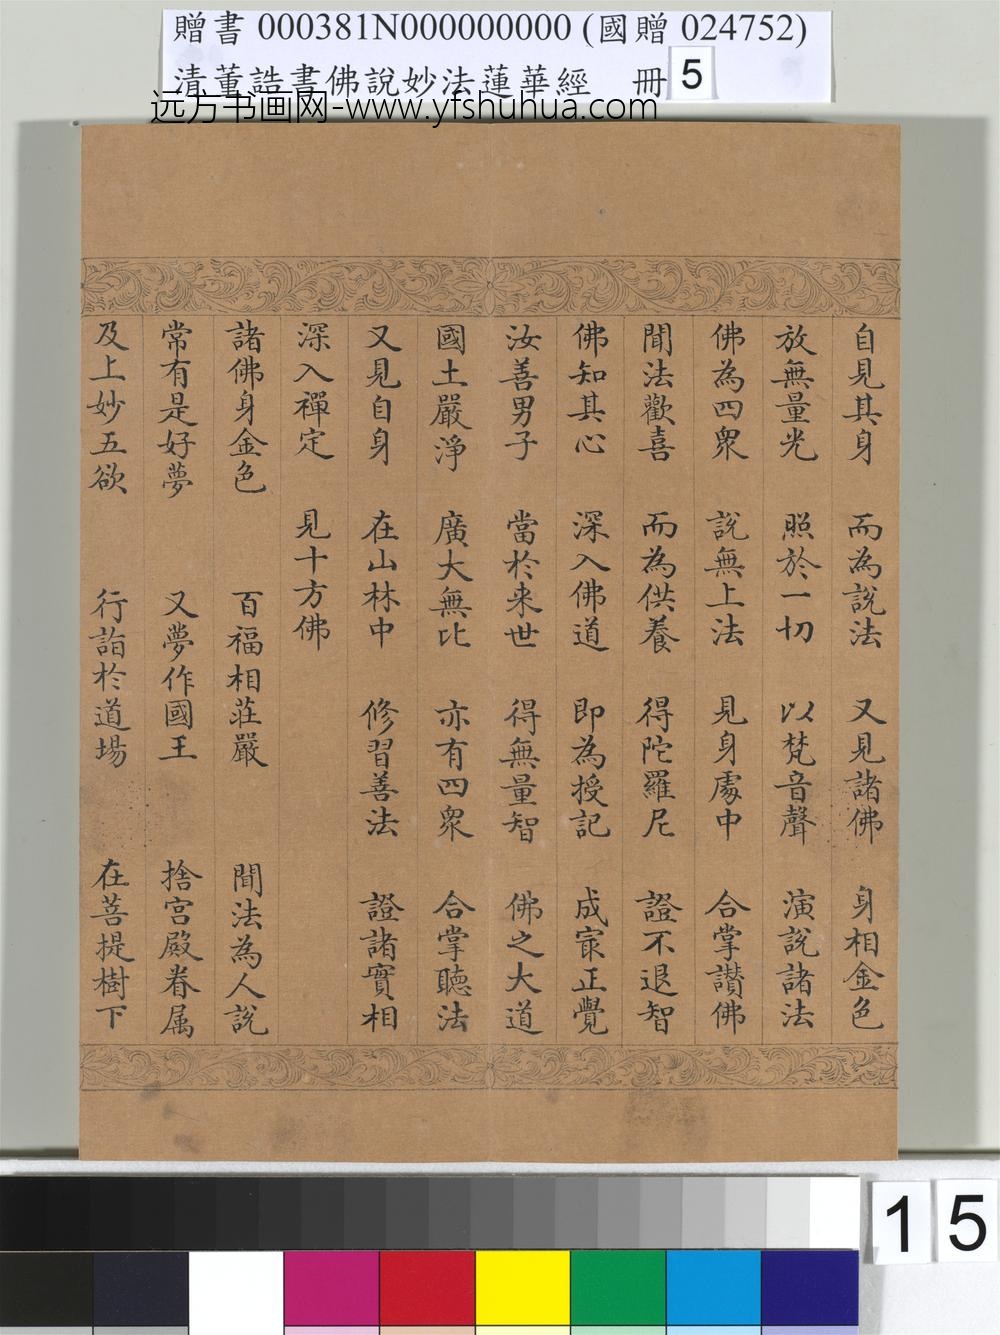 贈書 000381N000000000 (國贈 024752)
清董誥書佛說妙法蓮華經 冊 5
远方书画网-www.yfshuhua.com
自見其身 而為說法 又見諸佛 身相金色
放無量光 照於一切 以梵音聲 演說諸法
佛為四眾 說無上法 見身處中 合掌讃佛
聞法歡喜 而為供養 得陀羅尼 證不退智
佛知其心 深入佛道 即為授記 成㝡正覺
汝善男子 當於来世 得無量智 佛之大道
國土嚴淨 廣大無比 亦有四眾 合掌聽法
又見自身 在山林中 修習善法 證諸實相
深入禪定 見十方佛
諸佛身金色 百福相莊嚴 聞法為人說
常有是好夢 又夢作國王 捨宮殿眷属
及上妙五欲 行詣於道場 在菩提樹下
15